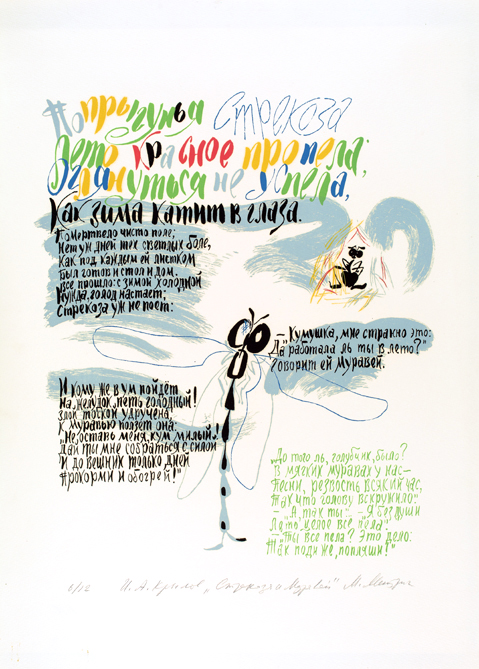 Попрыгунья Стрекоза
Лето красное пропела;
Оглянуться не успела,
Как зима катит в глаза.
Помертвело чисто поле;
Нет уж дней тех светлых боле,
Как под каждым ей листком
Был готов и стол и дом.
Все прошло: с зимой холодной
Нужда, голод настает;
Стрекоза уж не поет:
И кому же в ум пойдёт
На желудок петь голодный!
Злой тоской удручена,
К Муравью ползет она:
"Не оставь меня, кум милый!
Дай ты мне собраться с силой
И до вешних только дней
Прокорми и обогрей!"
- Кумушка, мне странно это:
Да работала ль ты в лето?"
Говорит ей Муравей.
До того ль, голубчик, было?
В мягких муравах у нас -
Песни, резвость всякий час,
Так что голову вскружило".
- "А, так ты..." - "Я без души
Лето целое все пела".
- "Ты все пела? Это дело:
Так поди же, попляши!"
6/12 И.А.Крылов „Стрекоза и Муравей" М.